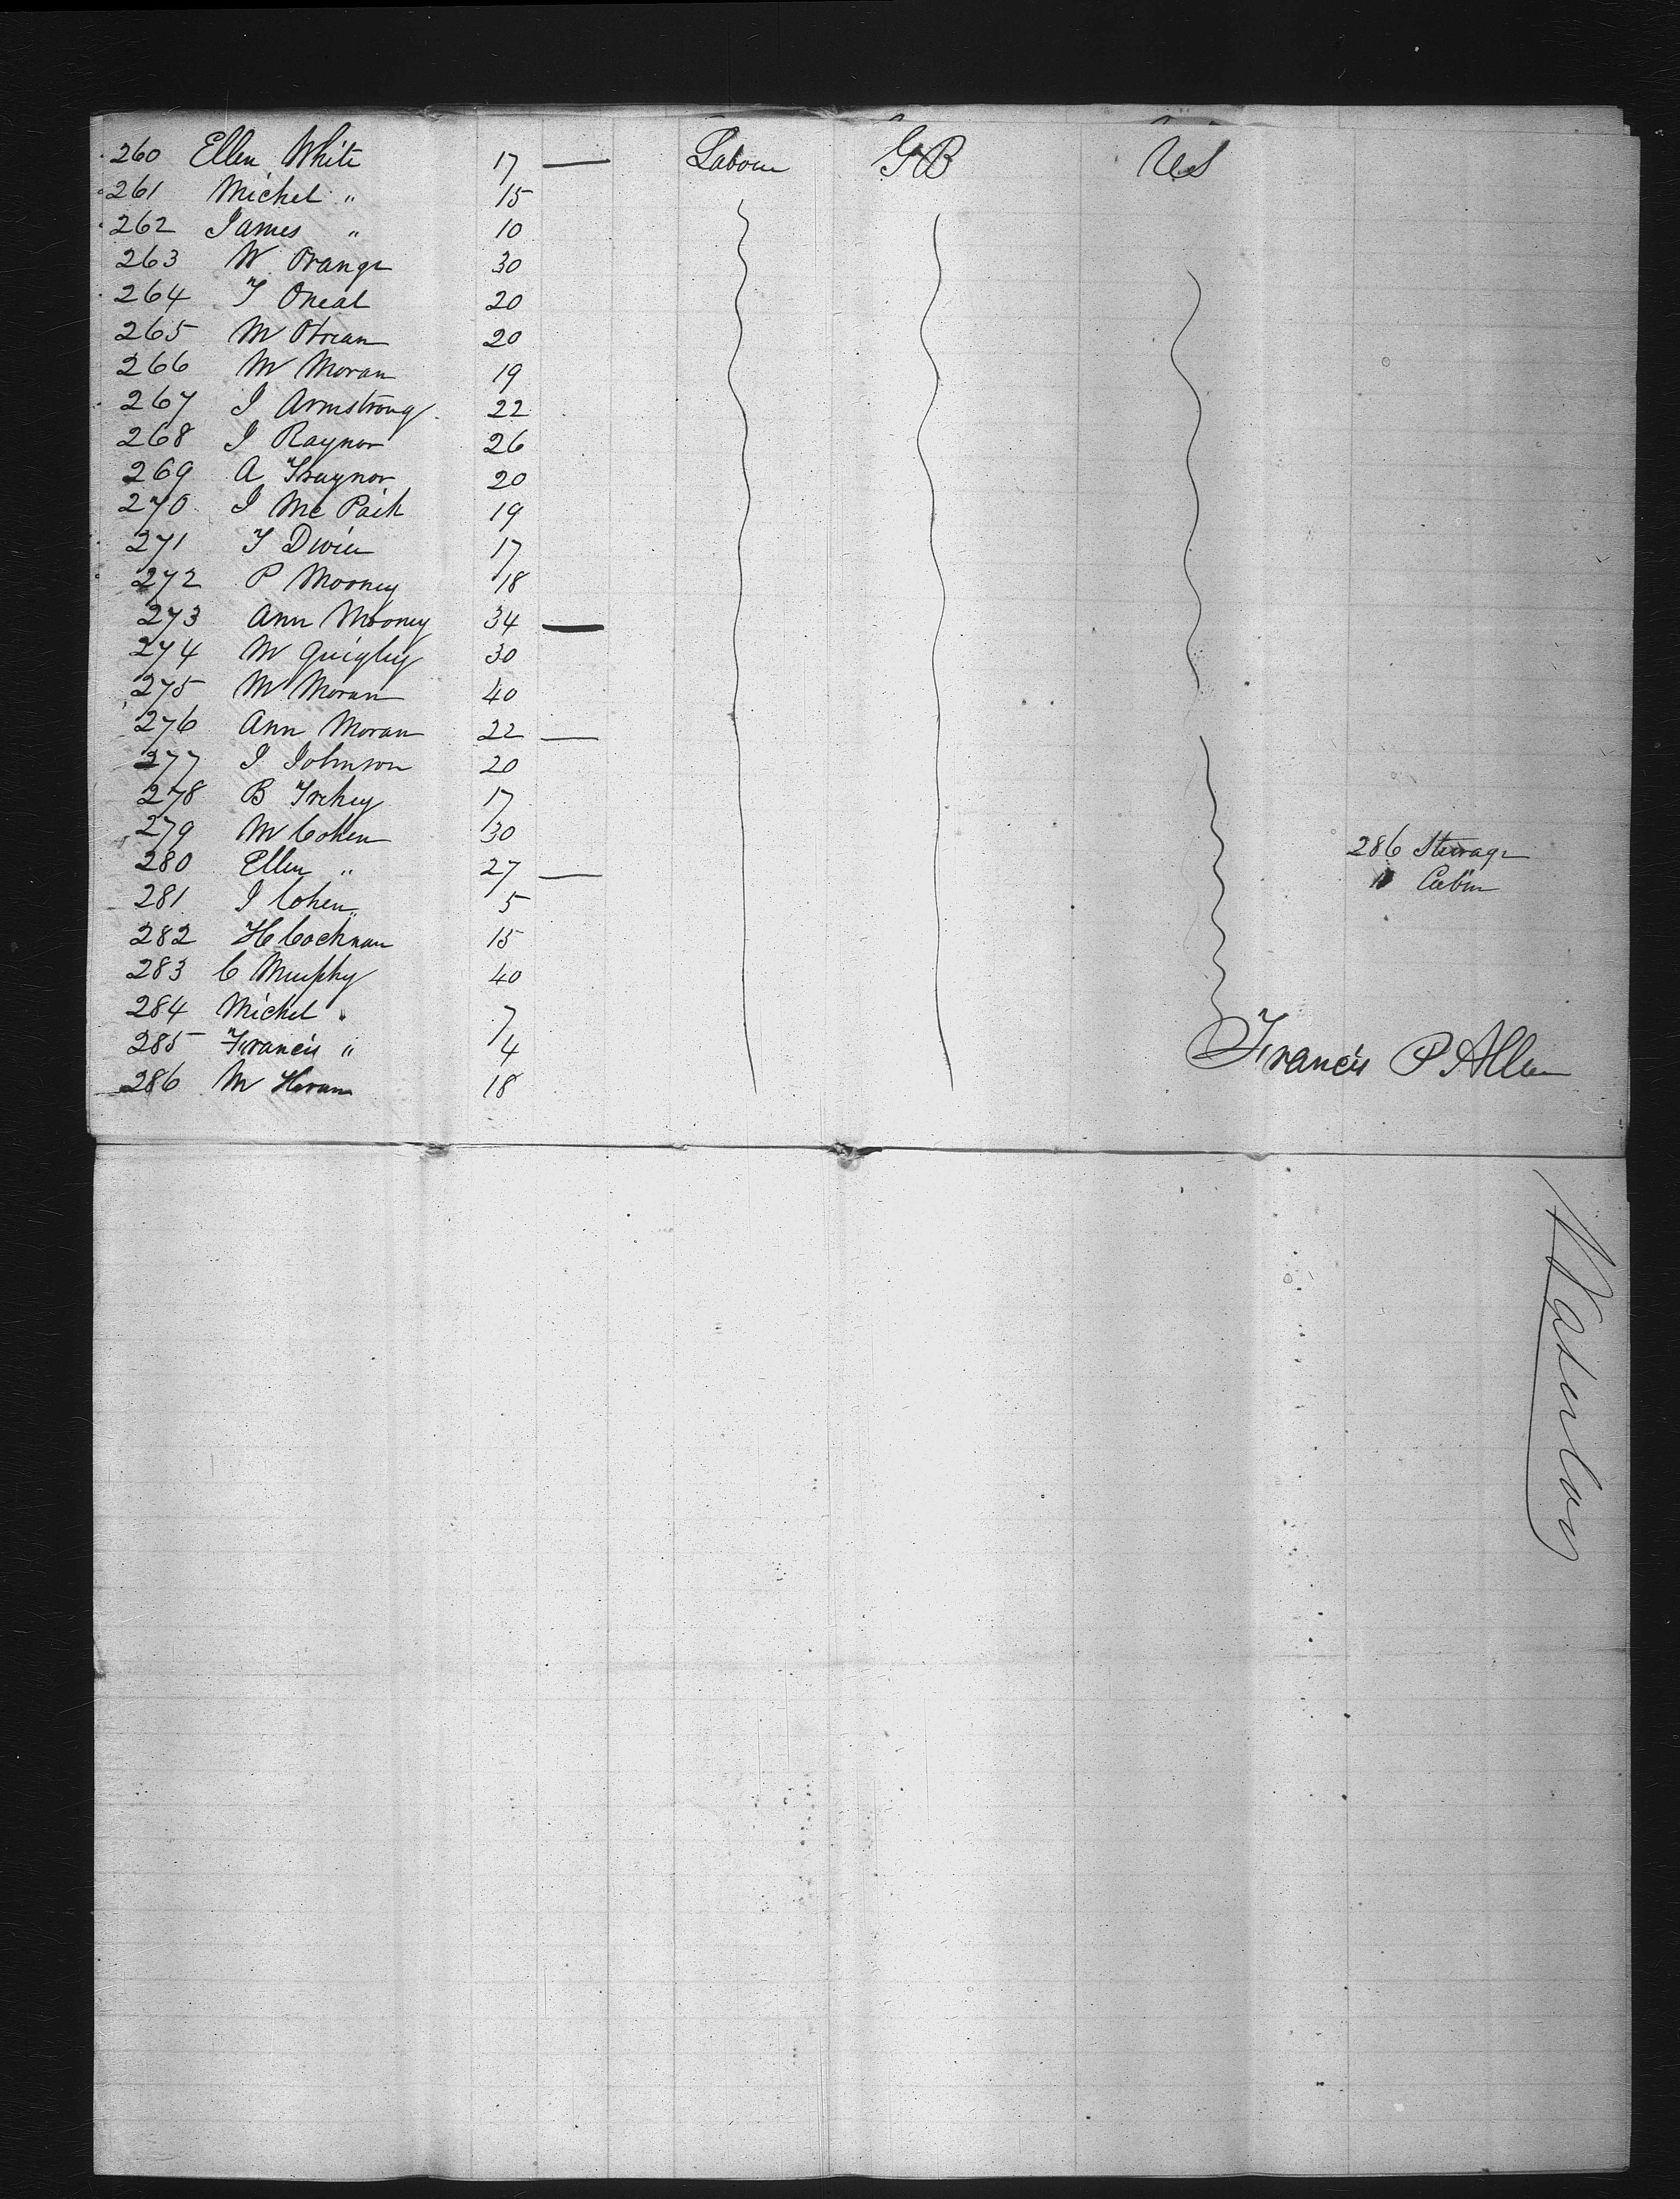 260 Ellen White 17 — Labour GB US
261 Michel " 15
262 James " 10
263 W Orange 30
264 T Oneal 20
265 M Obrean 20
266 M Moran 19
267 J Armstrong 22
268 J Raynor 26
269 A Traynor 20
270 J Mc 19
271 T 17
272 P Mooney 18
273 Ann Mooney 34 —
274 M Quigley 30
275 M Moran 40
276 Ann Moran 22 —
277 J Johnson 20
278 B 17
279 M Cohen 30
280 Ellen " 27 —
281 J Cohen " 5
282 H Cochnan 15
283 C Murphy 40
284 Michel " 7
285 Francis " 4
286 M 18
286 Steerage
Cabin
Francis P Allen
Waterloo